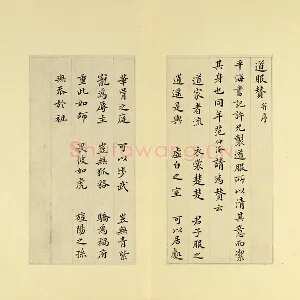 道服贊 并序
平海書記許兄製道服所以清其意而潔
其身也同年范仲淹請為贊云
道家者流 衣裳楚楚 君子服之
逍遙是與 虛白之室 可以居處
華胥之庭 可以步武 豈無青紫
寵為辱主 豈無狐貉 驕為禍府
重此如師 畏彼如虎 旌陽之孫
無忝於祖